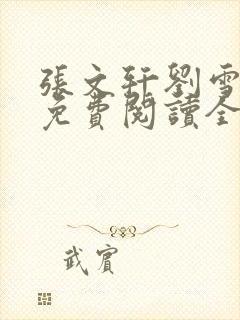 張文軒劉雪
免費閱讀全
武賓